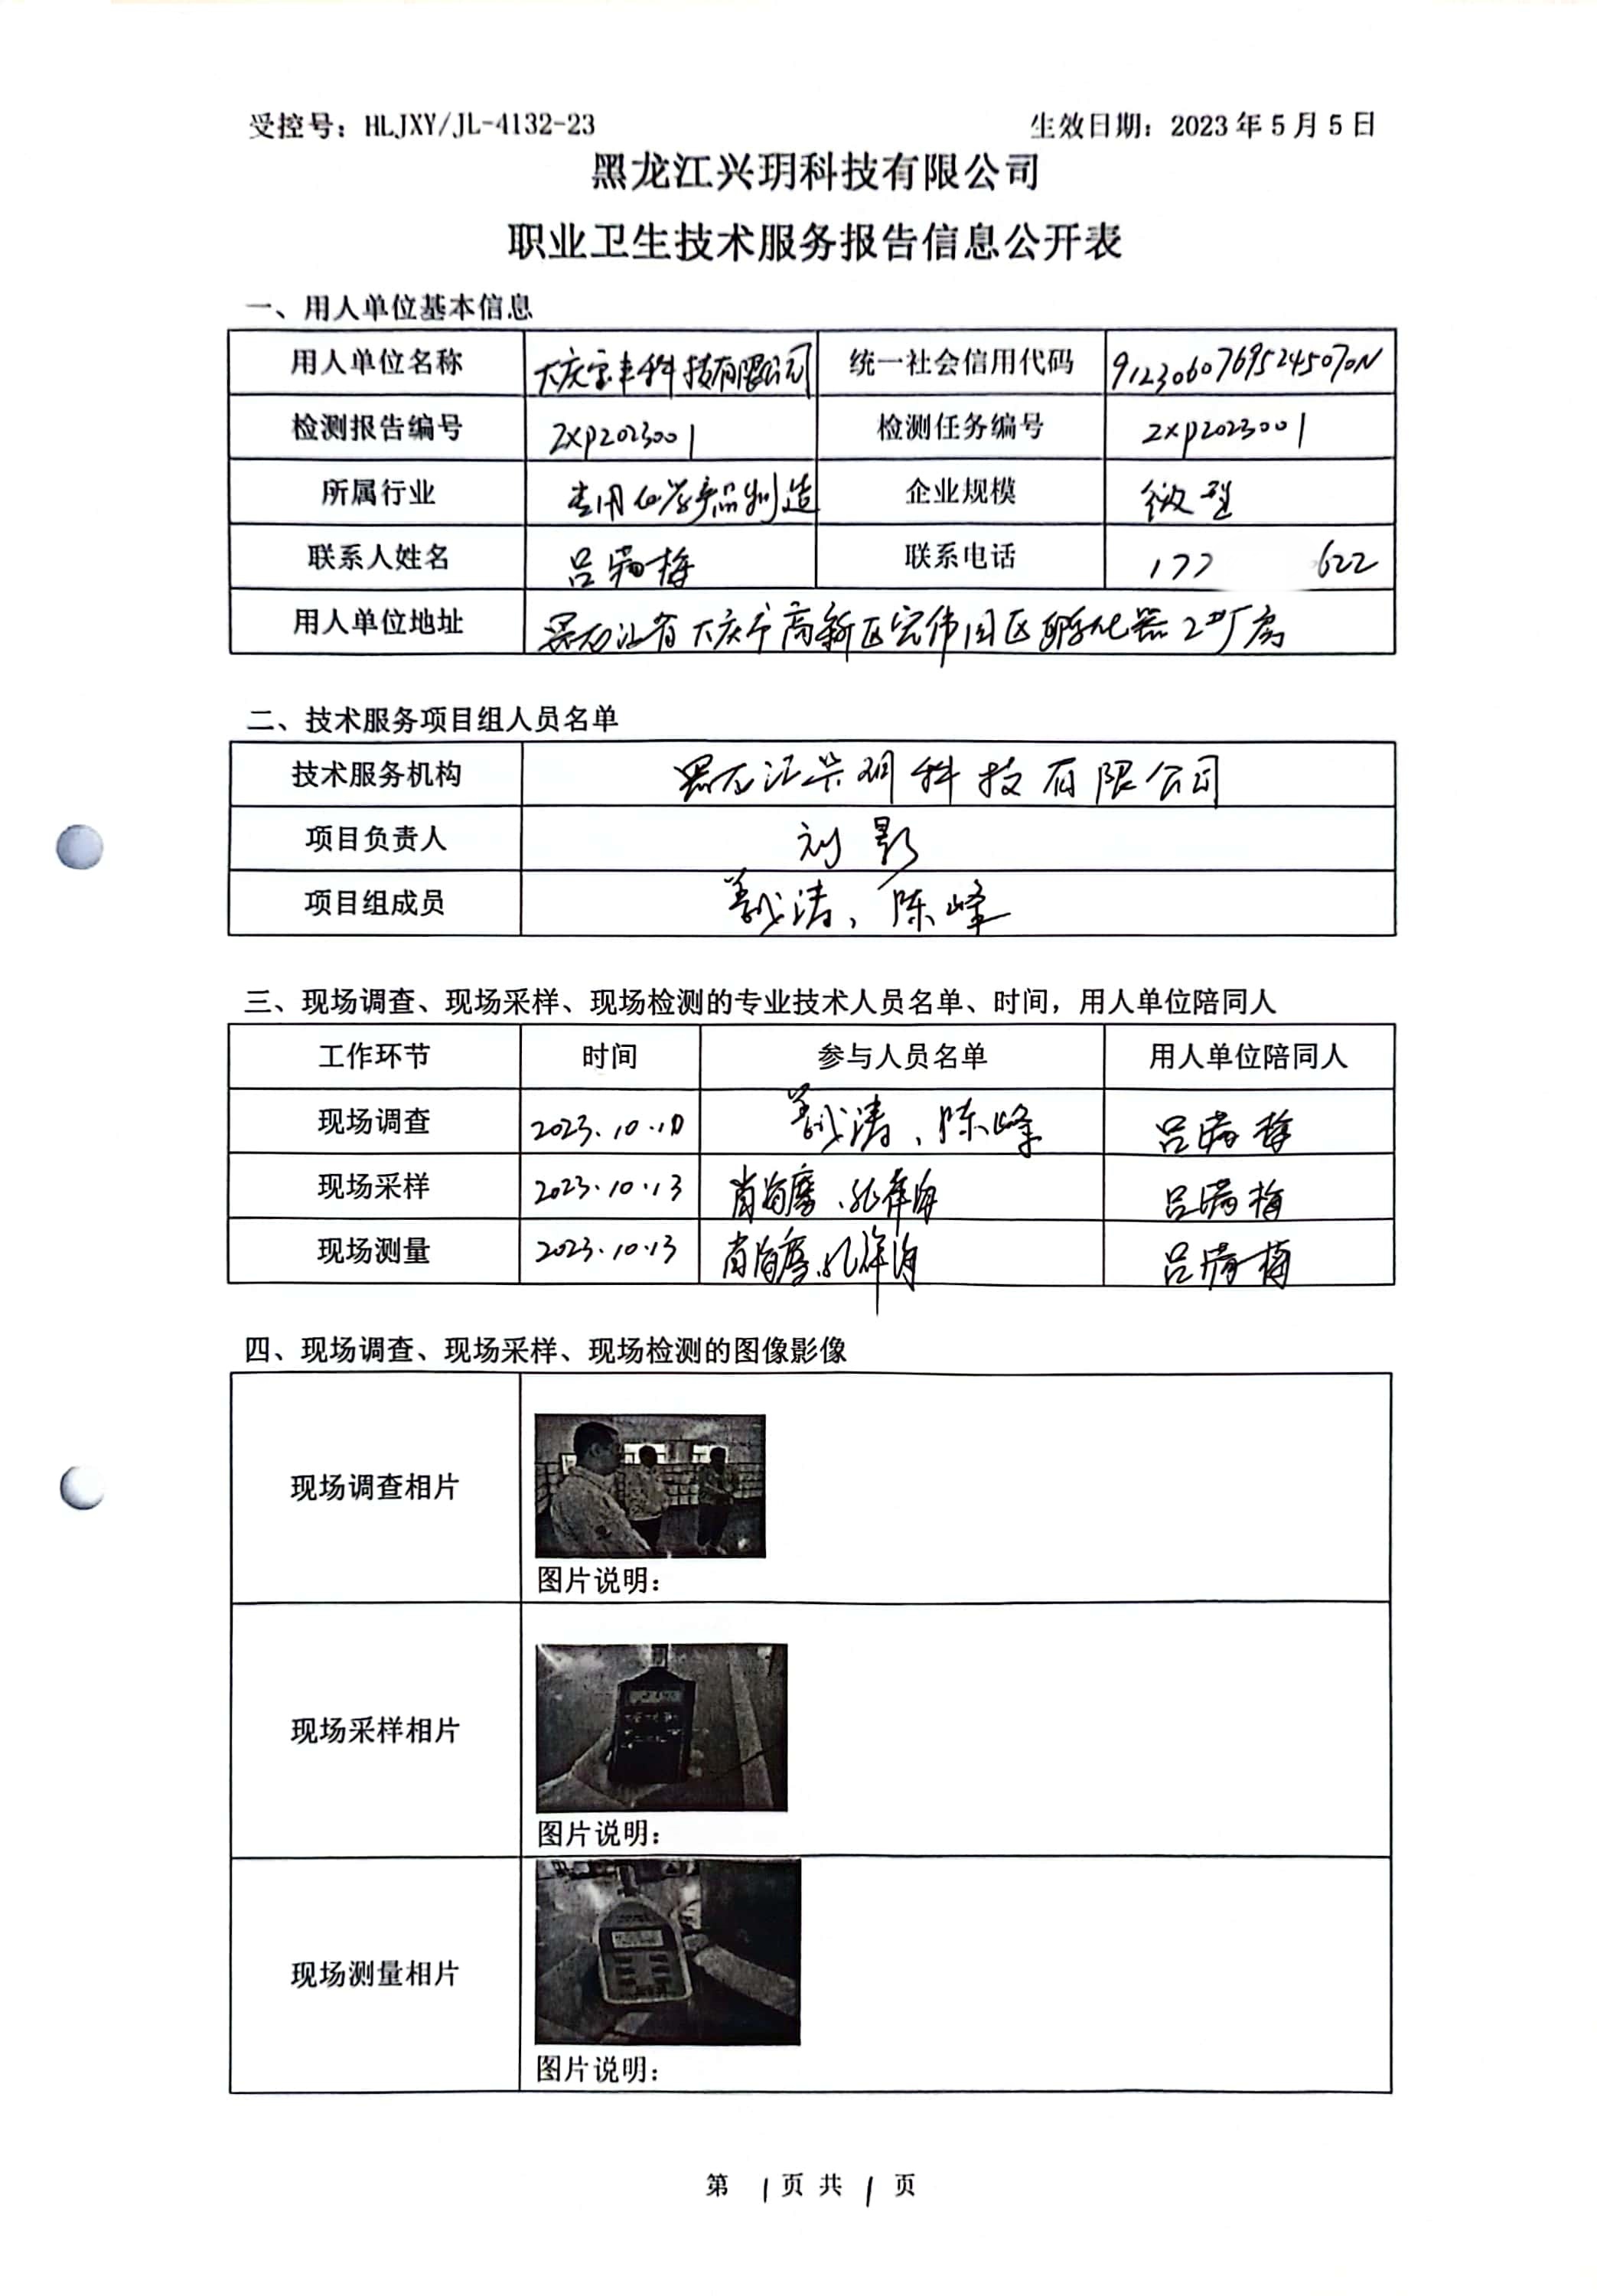 受控号：HLJXY/JL-4132-23 生效日期：2023年5月5日
黑龙江兴玥科技有限公司
职业卫生技术服务报告信息公开表
一、用人单位基本信息
用人单位名称 大庆宝丰科技有限公司 统一社会信用代码
检测报告编号 ZXP2023001 检测任务编号 ZXP2023001
所属行业 专用化学产品制造 企业规模 微型
联系人姓名 吕 梅 联系电话 177 622
用人单位地址 黑龙江省大庆市高新区宏伟园区孵化器2#厂房
二、技术服务项目组人员名单
技术服务机构 黑龙江兴玥科技有限公司
项目负责人 刘影
项目组成员 涛、陈峰
三、现场调查、现场采样、现场检测的专业技术人员名单、时间，用人单位陪同人
工作环节 时间 参与人员名单 用人单位陪同人
现场调查 2023.10.10 涛、陈峰 吕 梅
现场采样 2023.10.13 肖海 、孔祥海 吕 梅
现场测量 2023.10.13 肖海 、孔祥海 吕 梅
四、现场调查、现场采样、现场检测的图像影像
现场调查相片
图片说明：
现场采样相片
图片说明：
现场测量相片
图片说明：
第 1 页 共 1 页